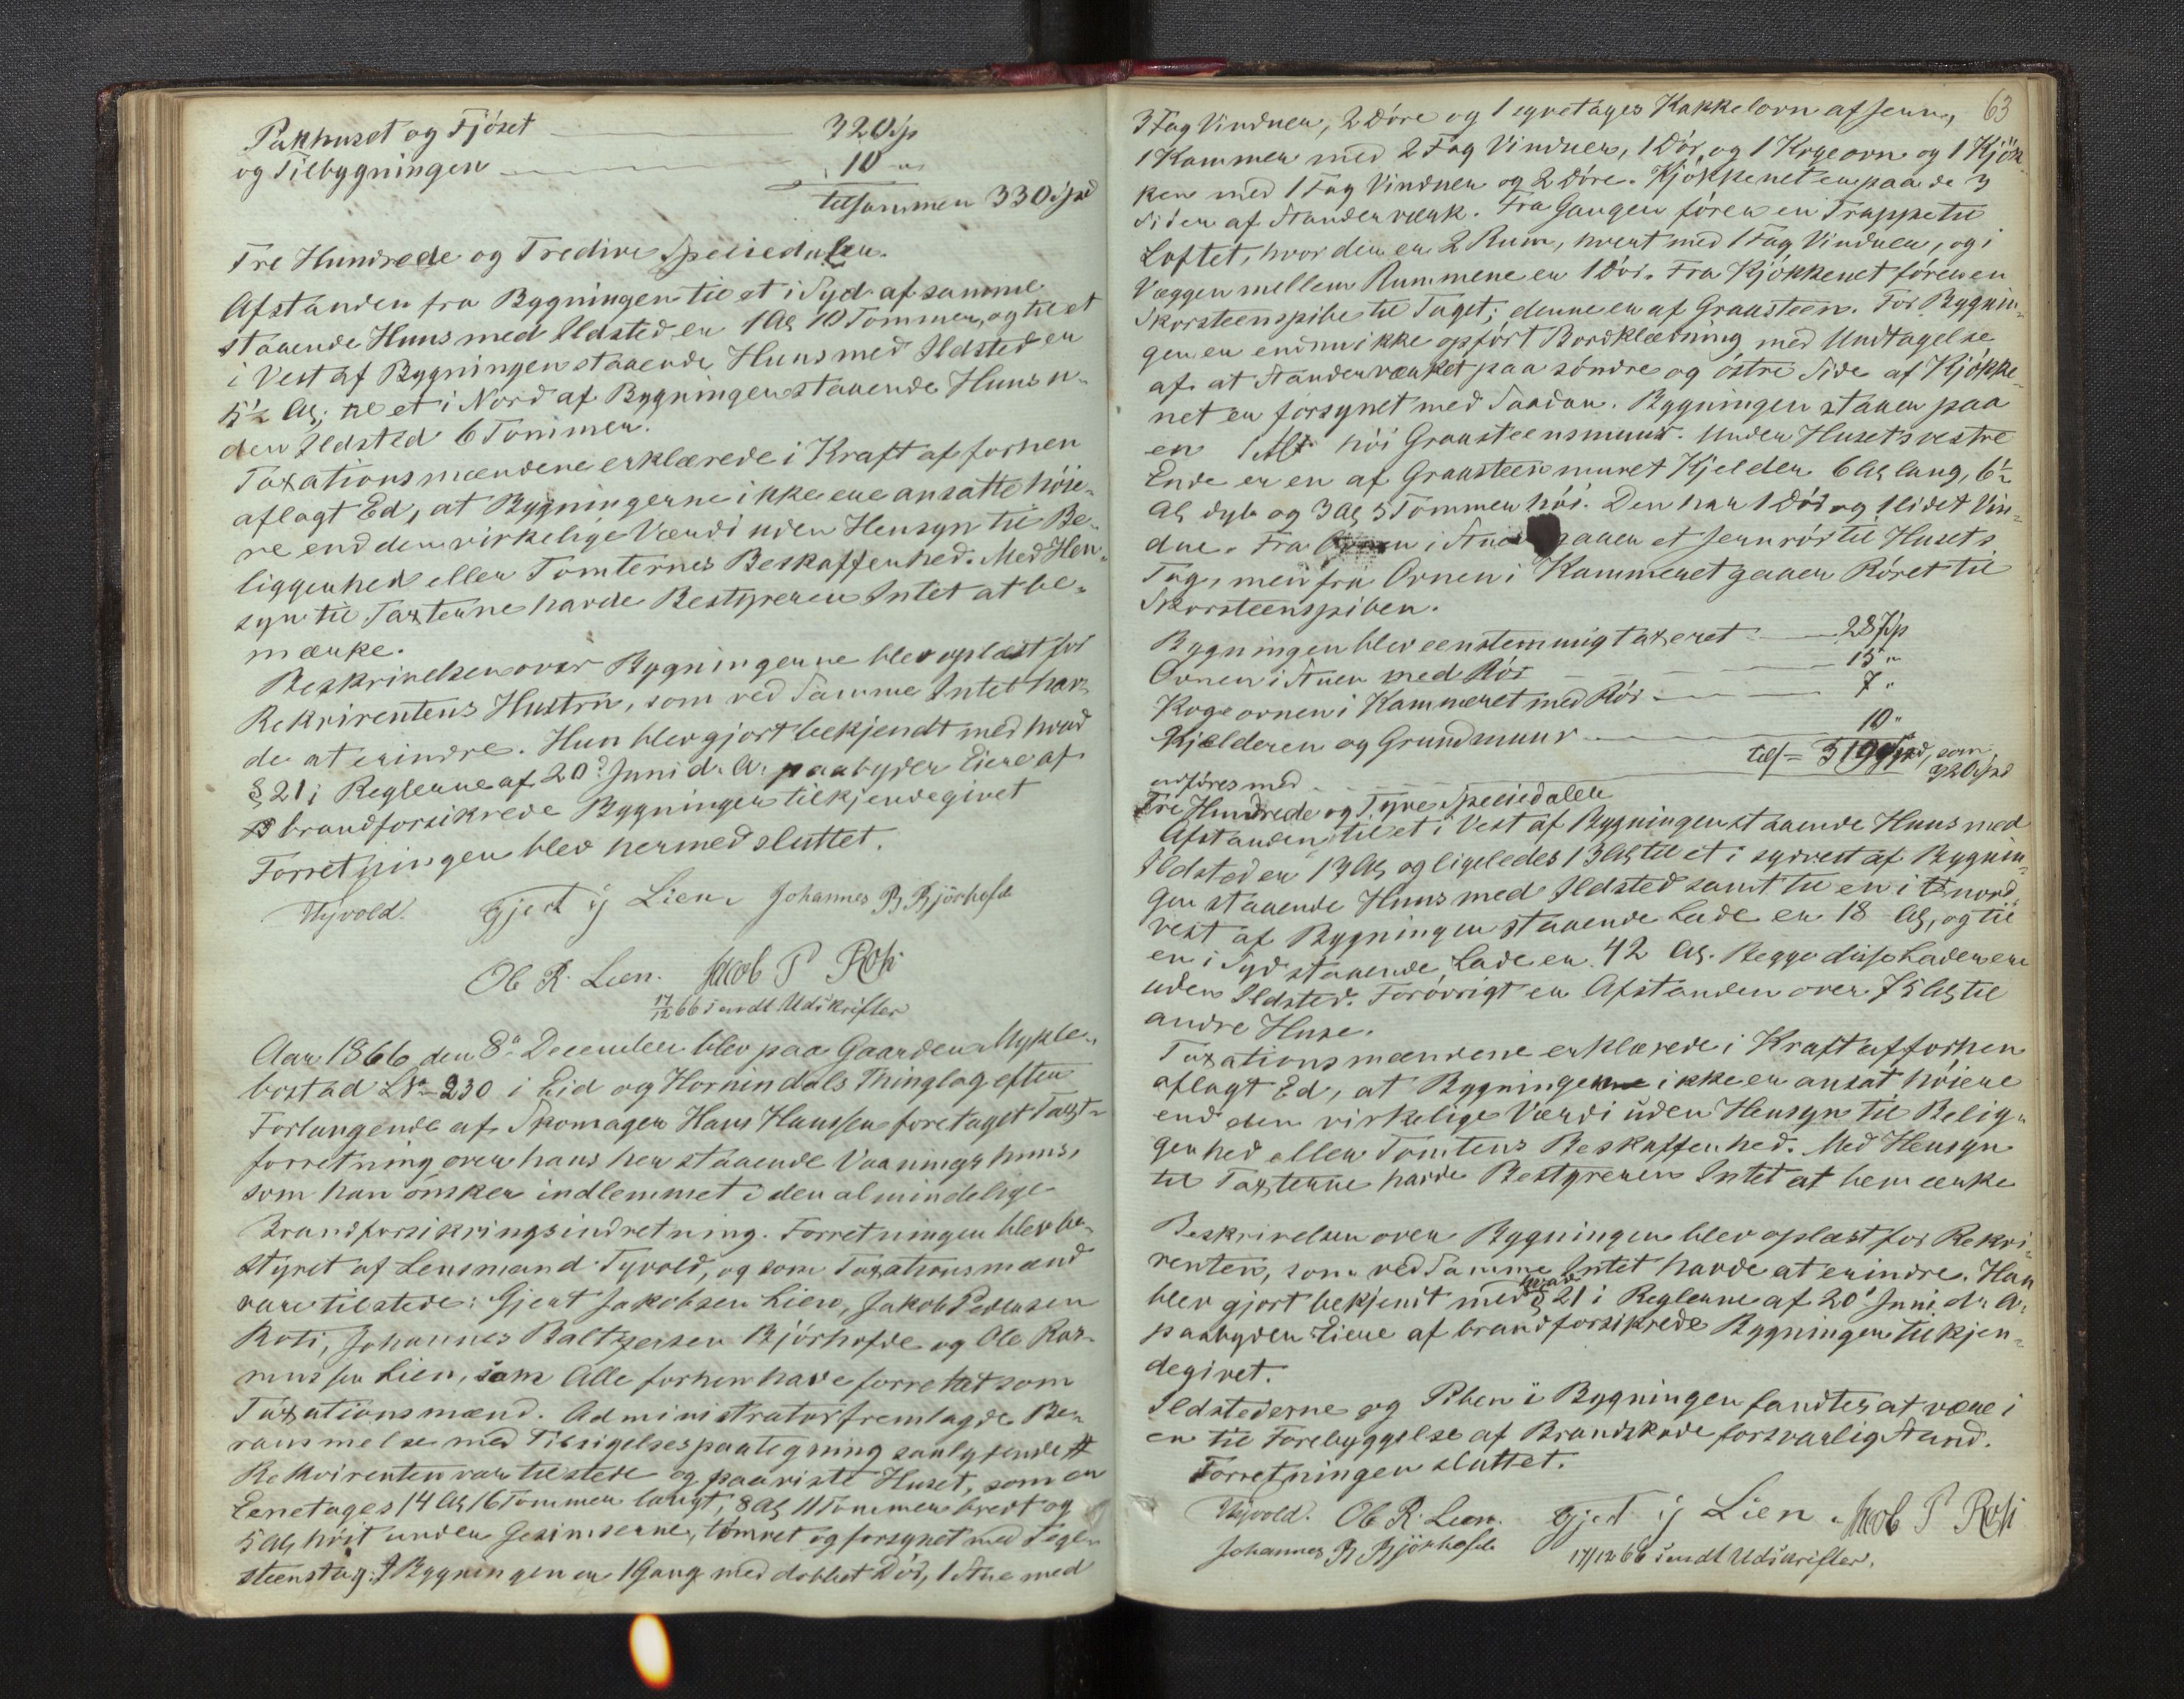 Pakhuset og Fjöset — 320 sp
og Tilbygningen — 10 "
tilsammen 330 spd
Tre Hundrede og Tredive Speciedaler.
Afstanden fra Bygningen til et i Syd af samme
staaende Huus med Ildsted er 1 Al 10 Tommer, og til et
i Vest af Bygningen staaende Huus med Ildsted er
5½ Al; til et i Nord af Bygningen staaende Huus u-
den Ildsted 6 Tommer.
Taxationsmændene erklærede i Kraft af forhen
aflagt Ed, at Bygningerne ikke ere ansatte höie-
re end den virkelige Værdi uden Hensyn til Be-
liggenhed eller Tomternes Beskaffenhed. Med Hen-
syn til Taxterne havde Bestyreren Intet at be-
mærke.
Beskrivelsen over Bygningerne blev oplæst for
Rekvirentens Hustru, som ved Samme Intet hav-
de at erindre. Hun blev gjort bekjendt med hvad
§ 21 i Reglerne af 20de Juni d. A. paabyder Eiere af
brandforsikrede Bygninger tilkjendegivet
Forretningen blev hermed sluttet.
Thyvold. Gjert J Lien. Johannes B Bjørhofde
Ole R. Lien. Jacob P Roti
17/12 66 sendt Udskrifter
Aar 1866 den 8de December blev paa Gaarden Mykle-
bostad LNo 230 i Eid og Hornindals Thinglag efter
Forlangende af Skomager Hans Hanssen foretaget Taxt-
forretning over hans her staaende Vaaningshuus,
som han önsker indlemmet i den almindelige
Brandforsikringsindretning. Forretningen blev be-
styret af Lensmand Tyvold, og som Taxationsmænd
vare tilstede: Gjert Jakobsen Lien, Jakob Pedersen
Roti, Johannes Baltzersen Bjórhofde og Ole Ras-
mussen Lien, som Alle forhen have forrettet som
Taxationsmænd. Administrator fremlagde Be-
rammelse med Tilsigelsespaategning saalydende #
Rekvirenten var tilstede og paaviste Huset, som er
Eenetages 14 Al 16 Tommer langt, 8 Al 11 Tommer bredt og
5 Al höit under Gesimserne, tömret og forsynet med Tegl-
steenstag. I Bygningen er 1 Gang med dobbet Dör, 1 Stue med
63
3 Fag Vinduer, 2 Döre og 1 Kakkelovn af Jern,
1 Kammer med 2 Fag Vinduer, 1 Dör og 1 Kogeovn og 1 Kjök-
ken med 1 Fag Vinduer og 2 Döre. Kjökkenet er paa de 3
Sider af Standerværk. Fra Gangen förer en Trappe til
Loftet, hvor der er 2 Rum, hvert med 1 Fag Vinduer, og i
Væggen mellem Rummene er 1 Dör. Fra Kjökkenet förer en
Skorsteenspibe til Taget; denne er af Graasteen. For Bygnin-
gen er endnu ikke opfört Bordklædning med Undtagelse
af at Standerværket paa söndre og östre Side af Kjökke-
net er forsynet med Saadan. Bygningen staaer paa
en 1 Al höi Graasteensmuur. Under Husets vestre
Ende er en af Graasteen muret Kjelder 6 Al lang, 6½
Al dyb og 3 Al 5 Tommer höi. Den har 1 Dör og 1 lidet Vin-
due. Fra Ovnen i Stuen gaaer et Jernrör til Husets
Tag, men fra Ovnen i Kammeret gaaer Röret til
Skorsteenspiben.
Bygningen blev eenstemmigt taxeret — 287 sp
Ovnen i Stuen med Rör — 15 "
Kogeovnen i Kammeret med Rör — 7 "
Kjelderen og Grundmuur — 10 "
tils = 319 spd, som
udföres med — 320 spd
Tre Hundrede og Tyve Speciedaler
Afstanden til et i Vest af Bygningen staaende Huus med
Ildsted er 13 Al og ligeledes 13 Al til et i sydvest af Bygnin-
gen staaende Huus med Ildsted samt til en i nord-
vest af Bygningen staaende Lade er 18 Al, og til
en i Syd staaende Lade er 42 Al. Begge disse Lader ere
uden Ildsted. Forövrigt er Afstanden over 75 Al til
andre Huse.
Taxationsmændene erklærede i Kraft af forhen
aflagt Ed, at Bygningen ikke er ansat höiere
end den virkelige Værdi uden Hensyn til Belig-
genhed eller Tomtens Beskaffenhed. Med Hensyn
til Taxterne havde Bestyreren Intet at bemærke
Beskrivelsen over Bygningen blev oplæst for Rekvi-
renten, som ved Samme Intet havde at erindre. Han
blev gjort bekjendt med hvad § 21 i Reglerne af 20de Juni d. A.
paabyder Eiere af brandforsikrede Bygninger tilkjen-
degivet.
Ildstederne og Piben i Bygningen fandtes at være i
en til Forebyggelse af Brandskade forsvarlig Stand.
Forretningen sluttet.
Thyvold. Ole R. Lien. Gjert J Lien. Jacob P Roti
Johannes B Bjørhofde 17/12 66 sendt Udskrifter.